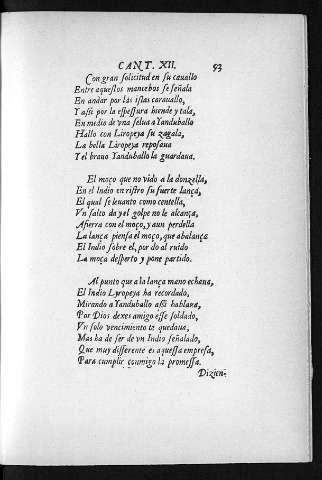 CANT. XII. 93
Con gran solicitud en su cauallo
Entre aquestos mancebos se señala
En andar por las islas carauallo,
Y assi por la espessura hiende y tala,
En medio de vna selua a Yanduballo
Hallo con Liropeya su zagala,
La bella Liropeya reposaua
Y el brauo Yanduballo la guardaua.
El moço que no vido a la donzella,
En el Indio en ristro su fuerte lança,
El qual se leuanto como centella,
Vn salto da y el golpe no le alcança,
Afierra con el moço, y aun perdella
La lança piensa el moço, que abalança
El Indio sobre el, por do al ruido
La moça desperto y pone partido.
Al punto que a la lança mano echaua,
El Indio Lyropeya ha recordado,
Mirando a Yanduballo assi hablaua,
Por Dios dexes amigo esse soldado,
Vn solo vencimiento te quedaua,
Mas ha de ser de vn Indio señalado,
Que muy differente es aquessa empresa,
Para cumplir conmigo la promessa.
Dizien-